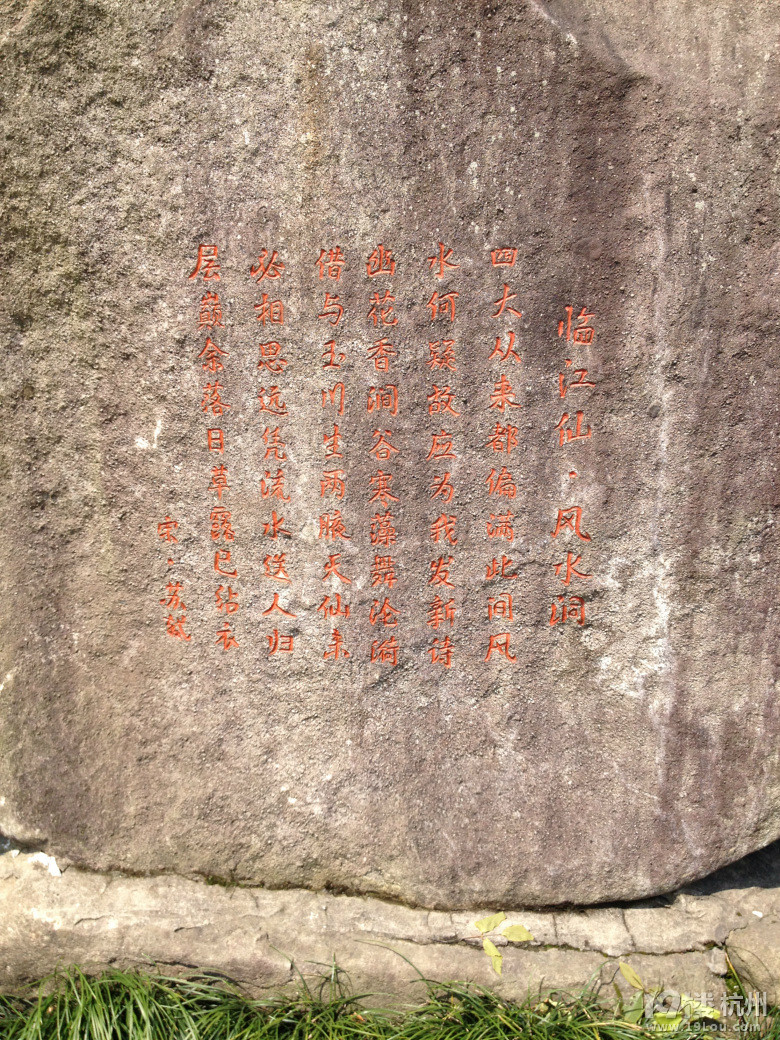 临江仙·风水洞
四大从来都偏满此间风
水何疑故应为我发新诗
幽花香涧谷寒藻舞沦漪
借与玉川生两腋天仙未
必相思远凭流水送人归
层巅余落日草露已沾衣
宋·苏轼
19楼杭州
www.19lou.com